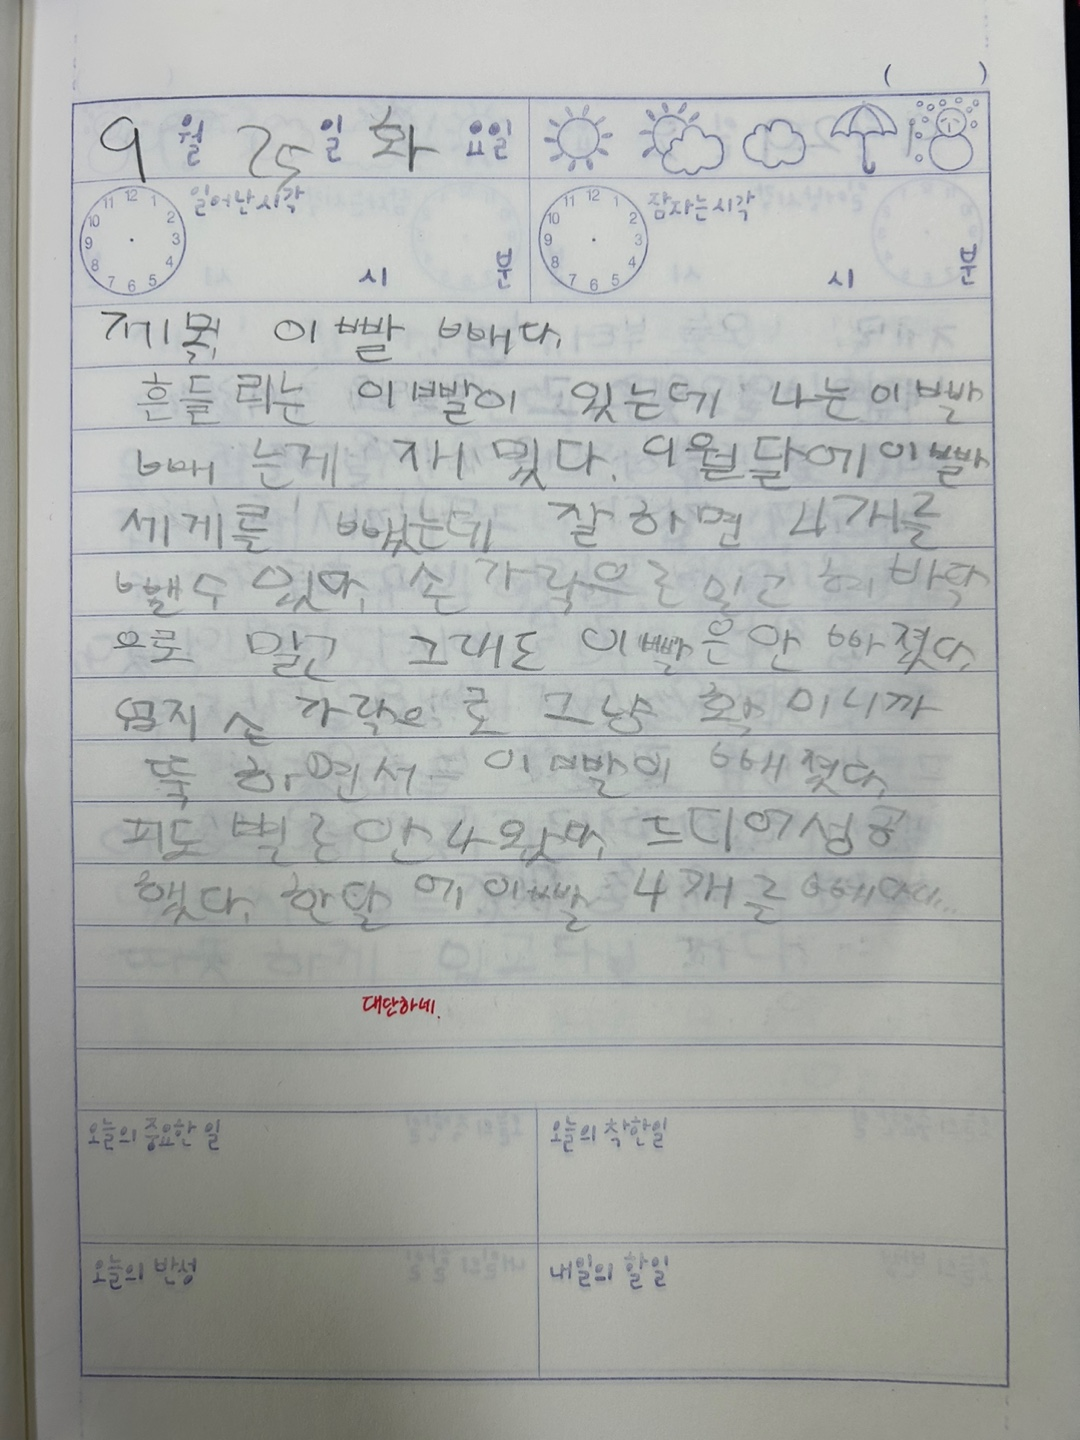 ( )
9 월 25 일 화 요일
일어난시각
12 1 2 3 4 5 6 7 8 9 10 11
시 분
잠자는시각
12 1 2 3 4 5 6 7 8 9 10 11
시 분
이빨 빼다.
흔들리는 이빨이 있는데 나는이빨
빼 는게 재 밌다. 9월달에이빨
세게를 뺐는데 잘하면 4개를
뺄수 있다. 손 가락으로 밀고 혀 바닥
으로 밀고 그래도 이빨은안 빠졌다.
엄지 손 가락으 로 그냥 확 미니까
뚝 하면서 이빨이 빼졌다.
피도 별로안나왔다. 드디어성공
했다. 한달 에이빨 4개를 빼다니...
대단하네.
오늘의 중요한 일
오늘의 착한일
오늘의 반성
내일의 할일